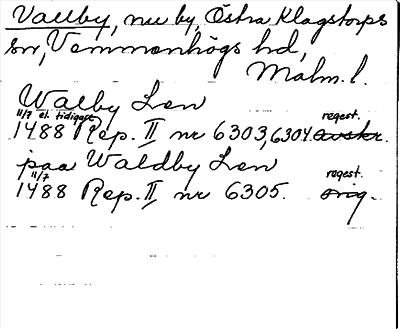 Vallby, nu by, Östra Klagstorps
sn, Vemmenhögs hd,
Malm.l.
Walby Len
11/7 el. tidigare regest.
1488 Rep. II nr 6303, 6304. avskr.
paa Waldby Len
11/7 regest.
1488 Rep. II nr 6305. orig.